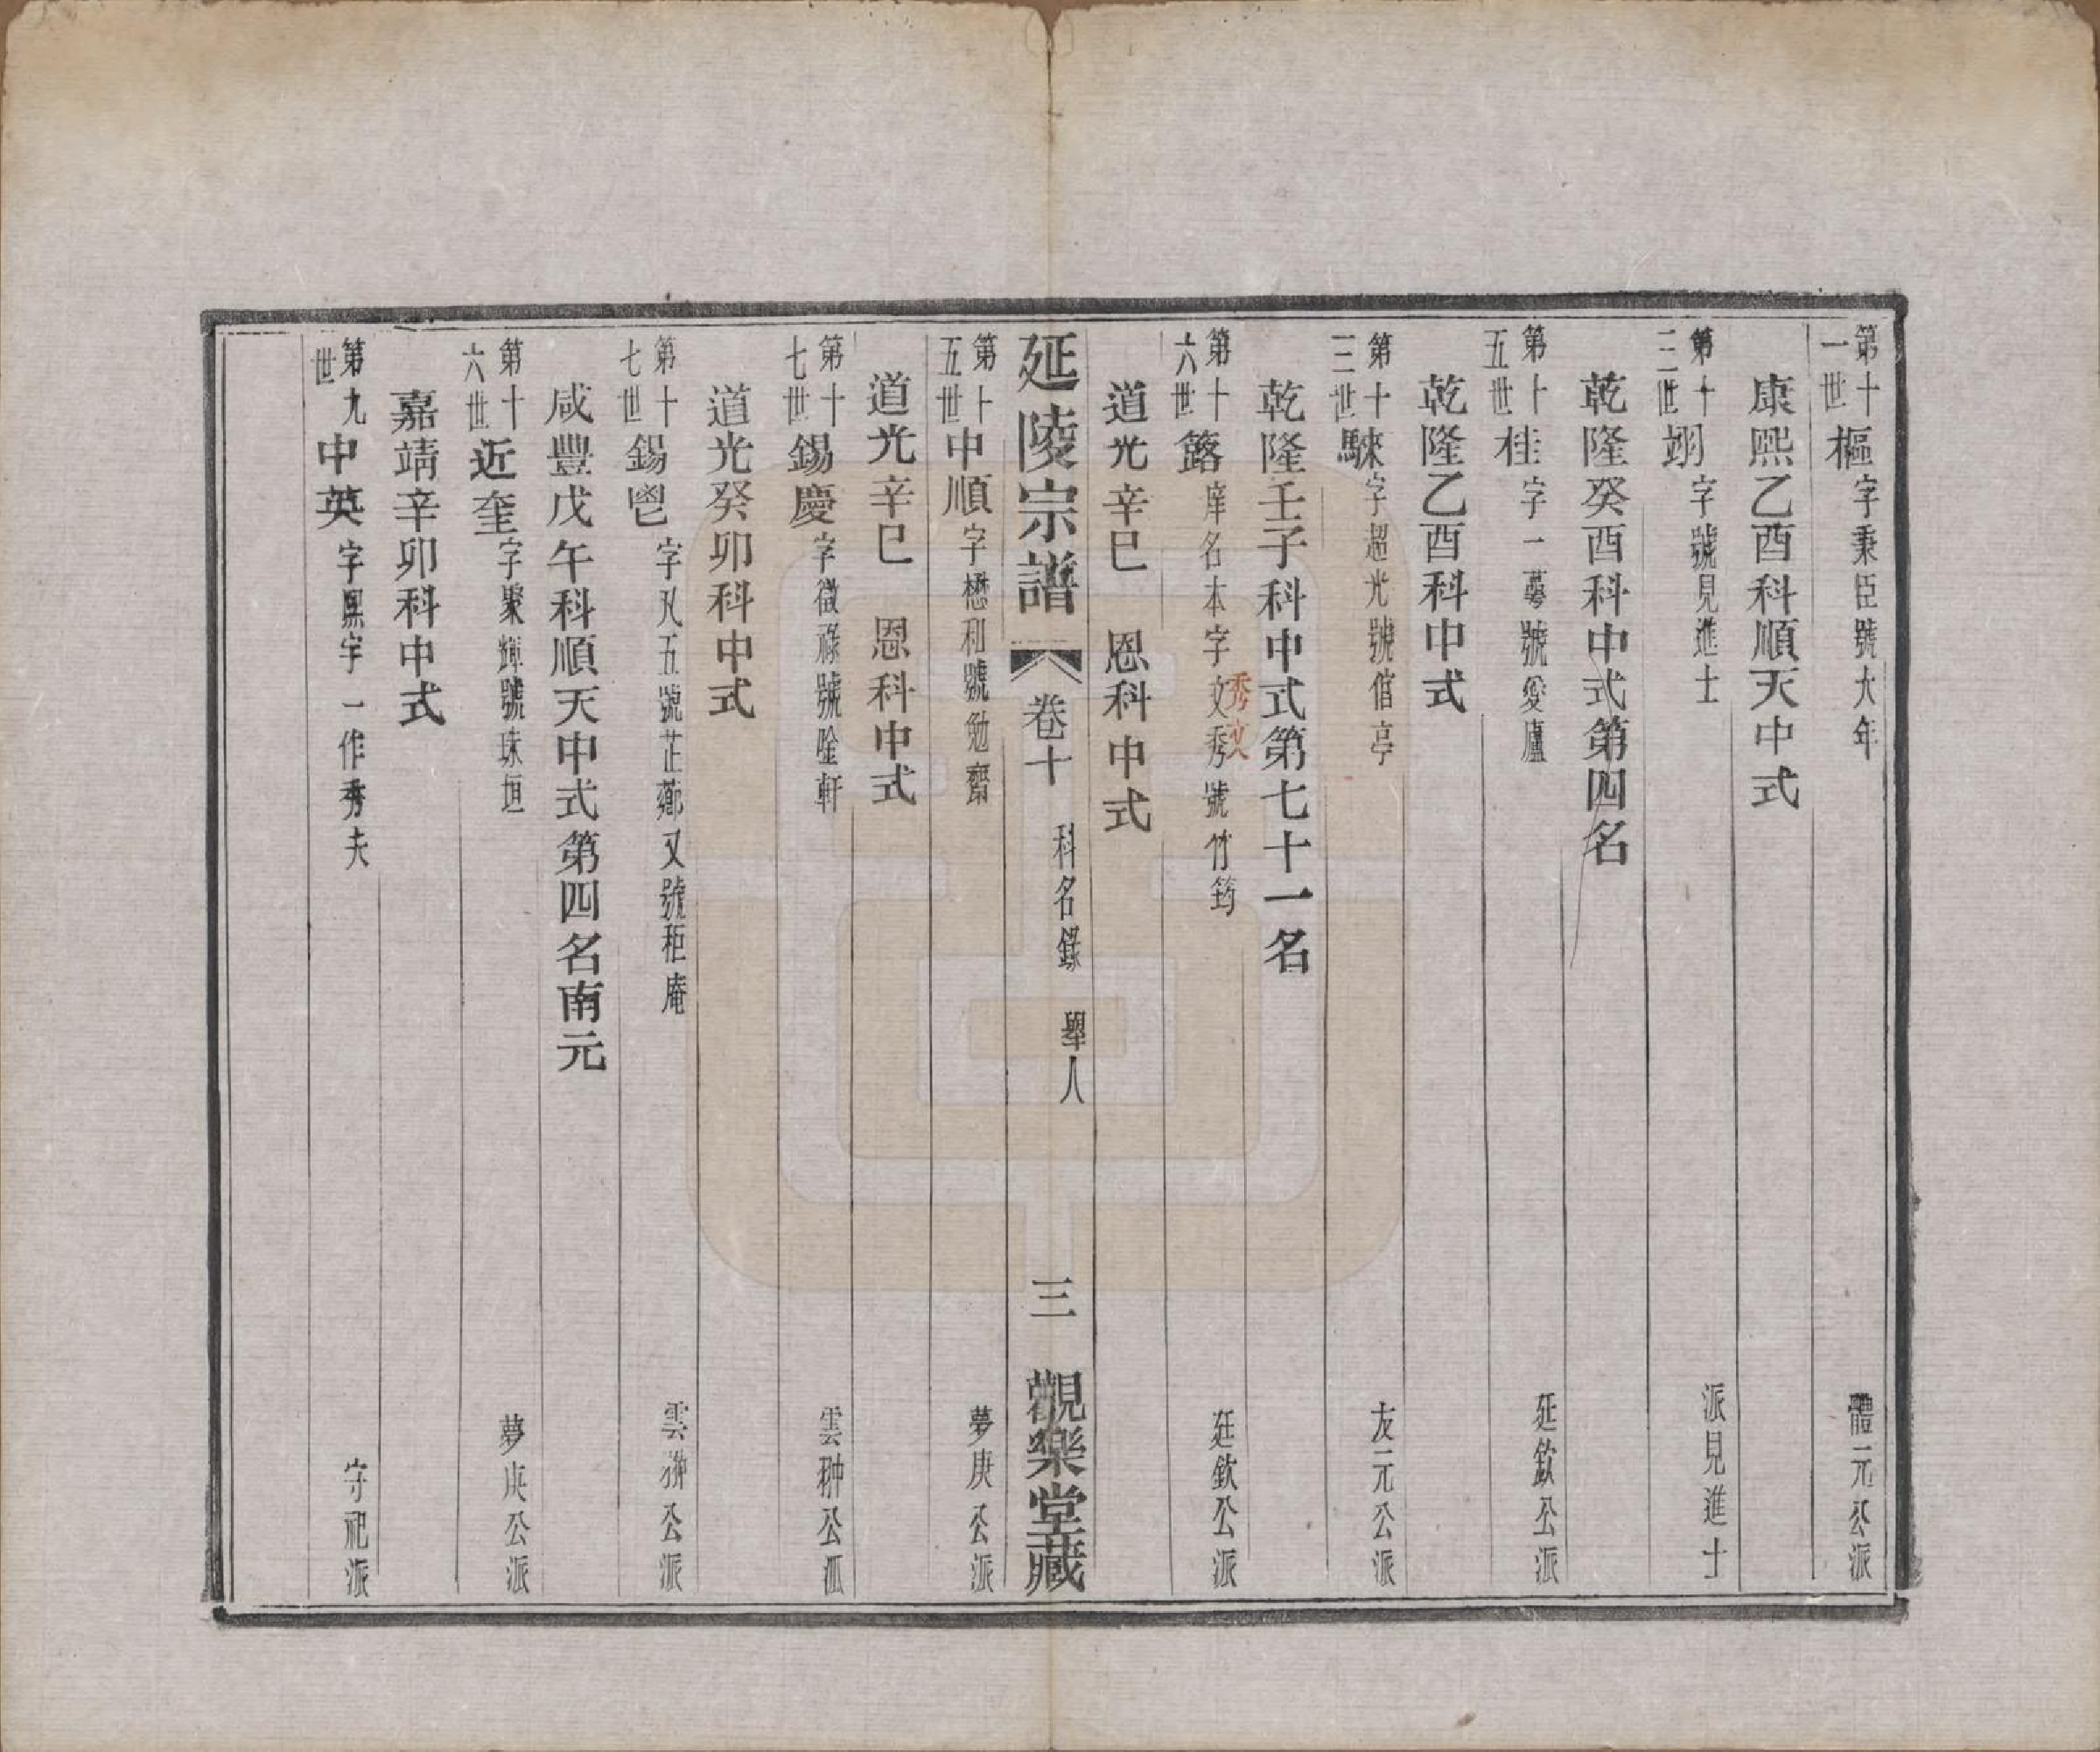 第十一世樞字秉臣號大年 體元公派
康熙乙酉科順天中式
第十三世翊字號見進士 派見進士
乾隆癸酉科中式第四名
第十五世桂字一蕚號愛廬 延欽公派
乾隆乙酉科中式
第十三世騋字超光號信亭 友元公派
乾隆壬子科中式第七十一名
第十六世簬庠名本字文秀號竹筠 廷欽公派
秀文
道光辛巳 恩科中式
延陵宗譜 卷十 科名錄 舉人 三 觀樂堂藏
第十五世中順字懋和號勉齋 夢庚公派
道光辛巳 恩科中式
第十七世錫慶字徵祿號 軒 雲翀公派
道光癸卯科中式
第十七世錫鬯字 五號芷薌又號秬庵 雲翀公派
咸豐戊午科順天中式第四名南元
第十六世近奎字聚輝號珠垣 夢庚公派
嘉靖辛卯科中式
第九世中英字熙宇一作秀夫 守祀派